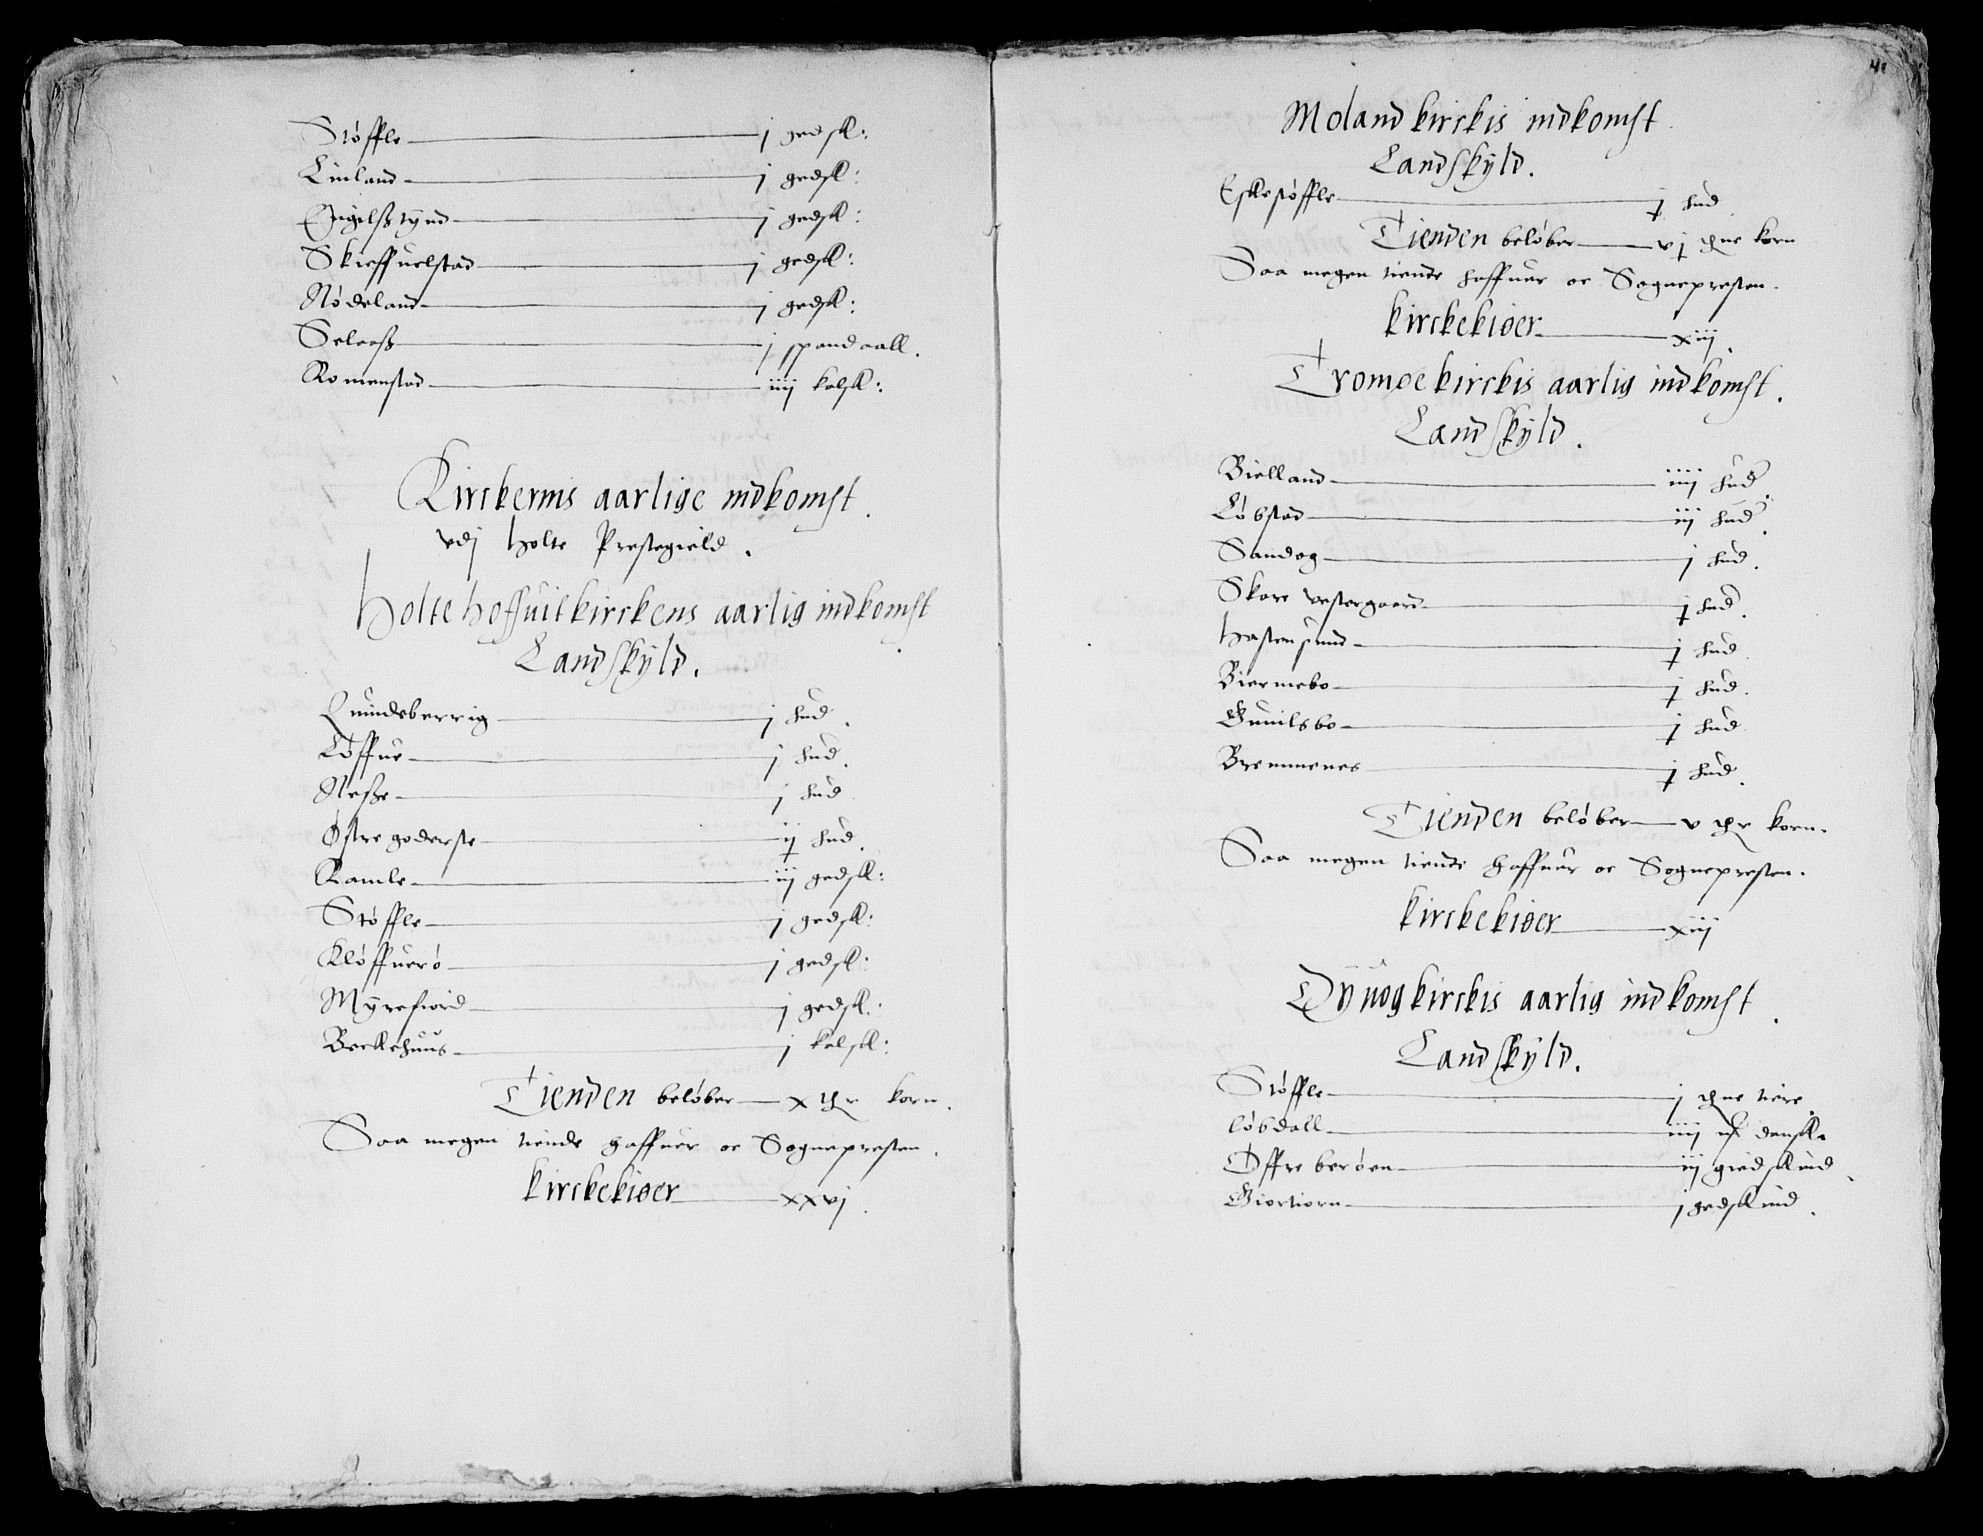 Støffle — j gedsk:
Linland — j gedsk:
Engelsstynd — j gedsk:
Skieffuelstad — j gedsk:
Nødeland — j gedsk:
Selaaß — j spandaall.
Romenstad — iiij kalsk:
Kirckernis aarlige indkomst.
vdj Holte Prestegield.
Holte hoffuitkirckens aarlig indkomst
Landskyld.
Quindeberrig — j hud.
Løffue — j hud.
Neße — j hud
Østre goderste — ij hud.
Ramle — iij gedsk:
Støffle — j gedsk:
Kløffuerø — j gedsk:
Myrefiord — j gedsk:
Beckehuus — j kalsk:
Tienden beløber — x thr korn.
Saa megen tiende haffuer oc Sognepresten.
kirckekiøer — xxvj.
41
Moland kirckis indkomst
Landskyld.
Eskestøffle — j hud
Tienden beløber — vj thne korn
Saa megen tiende haffuer oc Sognepresten.
kirckekiøer — xiij.
Tromøe kirckis aarlig indkomst.
Landskyld.
Bielland — iiij hud.
Løbstad — iij hud.
Sandag — j hud.
Skare vestergaard — j hud.
Hastensund — j hud
Biermebo — j hud.
Gunilsbo — j hud
Bremmenes — j hud.
Tienden beløber — v thr korn.
Saa megen tiende haffuer oc Sognepresten.
kirckekiøer — xiij
Dyuog kirckis aarlig indkomst.
Landskyld.
Støffle — j thne tiere.
Løbdall — iiij danske
Øffre berøen — iij giedskind.
Giortiorn — j gedskind.